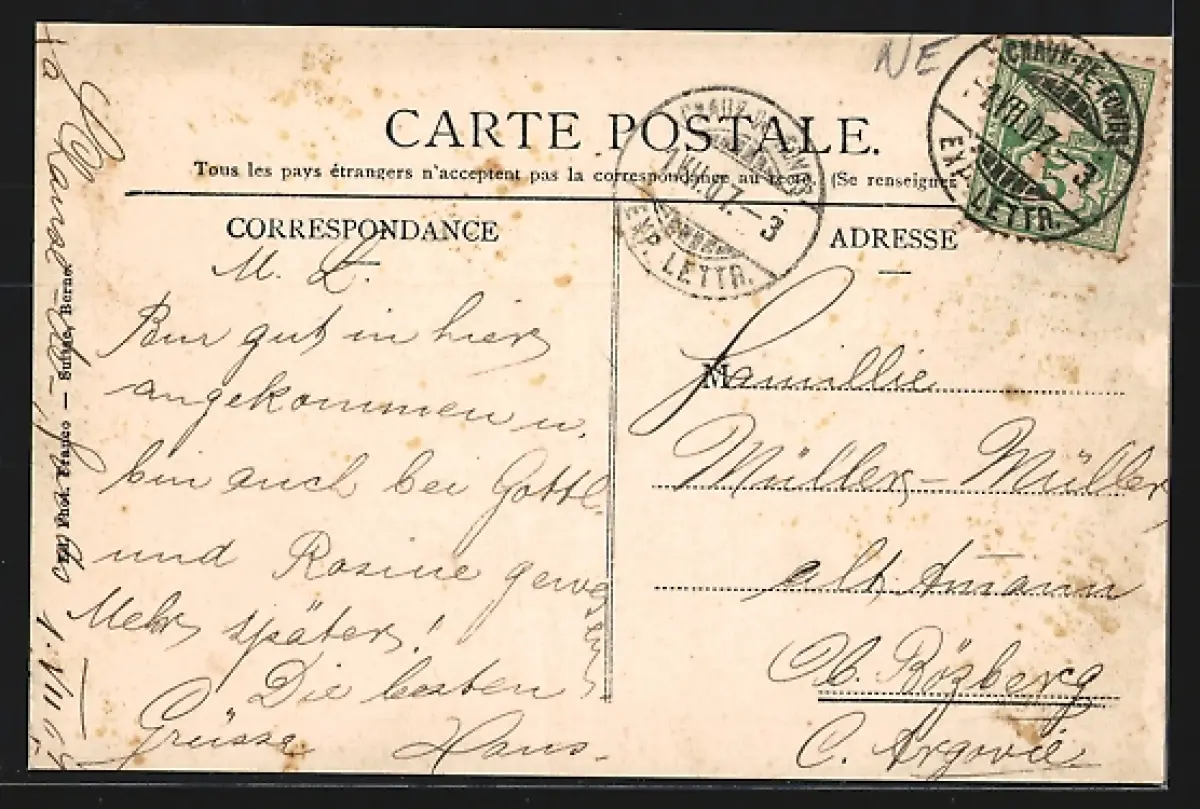 NE
CARTE POSTALE.
Tous les pays étrangers n'acceptent pas la correspondance au recto. (Se renseigner
CORRESPONDANCE
M. L.
Bin gut in hier
angekommen u.
bin auch bei Gottl.
und Rosine gewesen
Mehr später!
Die besten
Grüsse Hans.
ADRESSE
M
Familie
Müller-Müller
alt Amann
Ob. Bözberg
C. Argovie
CHAUX-DE-FONDS
1.VII.07.-3
EXP. LETTR.
CHAUX-DE-FONDS
1.VII.07.-3
EXP. LETTR.
Phot. Franco — Suisse, Berne.
Chaux-de-Fonds 1.VII 07